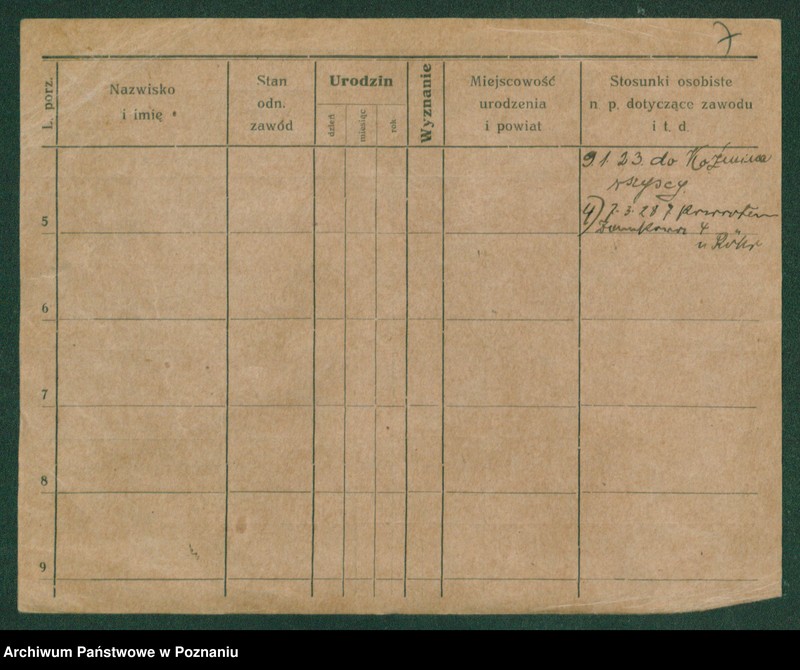 7
L. porz.
Nazwisko
i imię
Stan
odn.
zawód
Urodzin
dzień
miesiąc
rok
Wyznanie
Miejscowość
urodzenia
i powiat
Stosunki osobiste
n. p. dotyczące zawodu
i t. d.
9 1 23. do Koźmina
wszyscy.
5
4) 7. 3. 28
4
u
6
7
8
9
Archiwum Państwowe w Poznaniu